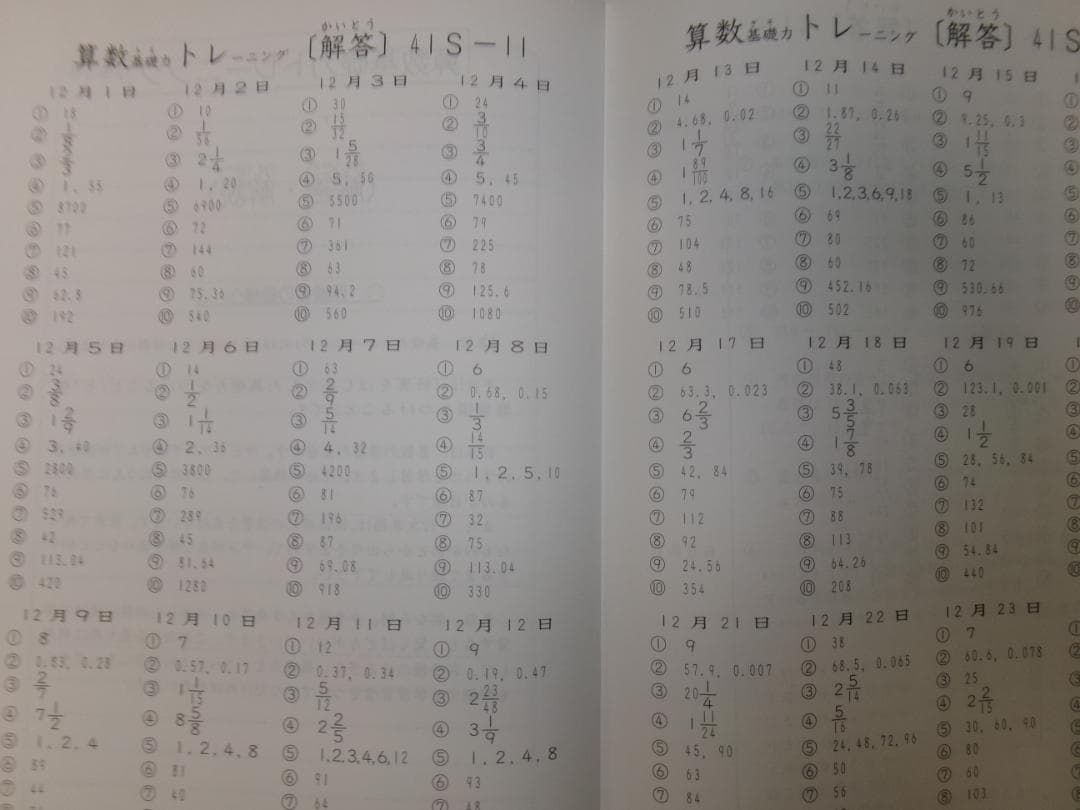 算数基礎力トレーニング〔解答〕41S-11
かいとう
12月1日
① 18
④ 1, 55
⑤ 8700
⑥ 77
⑦ 121
⑧ 45
⑨ 62.8
⑩ 192
12月2日
① 10
② 1/56
③ 2 1/4
④ 1, 20
⑤ 6900
⑥ 72
⑦ 144
⑧ 60
⑨ 75.36
⑩ 540
12月3日
① 30
② 15/32
③ 1 5/28
④ 5, 50
⑤ 5500
⑥ 71
⑦ 361
⑧ 63
⑨ 94.2
⑩ 560
12月4日
① 24
② 3/10
③ 3/4
④ 5, 45
⑤ 7400
⑥ 79
⑦ 225
⑧ 78
⑨ 125.6
⑩ 1080
12月5日
① 24
② 3/8
③ 1 2/9
④ 3, 40
⑤ 2800
⑥ 76
⑦ 529
⑧ 42
⑨ 113.04
⑩ 420
12月6日
① 14
② 1/2
③ 1 1/14
④ 2, 36
⑤ 3800
⑥ 76
⑦ 289
⑧ 45
⑨ 81.64
⑩ 1280
12月7日
① 63
② 2/9
③ 5/14
④ 4, 32
⑤ 4200
⑥ 81
⑦ 196
⑧ 87
⑨ 69.08
⑩ 918
12月8日
① 6
② 0.68, 0.15
③ 1/3
④ 14/15
⑤ 1, 2, 5, 10
⑥ 87
⑦ 32
⑧ 75
⑨ 113.04
⑩ 330
12月9日
① 8
② 0.83, 0.28
③ 2/7
④ 7 1/2
⑤ 1, 2, 4
⑥ 89
⑦ 44
12月10日
① 7
② 0.57, 0.17
③ 1 1/15
④ 8 5/8
⑤ 1, 2, 4, 8
⑥ 81
⑦ 40
12月11日
① 12
② 0.37, 0.34
③ 5/12
④ 2 2/5
⑤ 1,2,3,4,6,12
⑥ 91
⑦ 64
12月12日
① 9
② 0.19, 0.47
③ 2 23/48
④ 3 1/9
⑤ 1, 2, 4, 8
⑥ 93
⑦ 48
算数基礎力トレーニング〔解答〕41S
かいとう
12月13日
① 14
② 4.68, 0.02
③ 1 1/7
④ 1 89/100
⑤ 1, 2, 4, 8, 16
⑥ 75
⑦ 104
⑧ 48
⑨ 78.5
⑩ 510
12月14日
① 11
② 1.87, 0.26
③ 22/27
④ 3 1/8
⑤ 1,2,3,6,9,18
⑥ 69
⑦ 80
⑧ 60
⑨ 452.16
⑩ 502
12月15日
① 9
② 9.25, 0.3
③ 1 11/15
④ 5 1/2
⑤ 1, 13
⑥ 86
⑦ 60
⑧ 72
⑨ 530.66
⑩ 976
12月17日
① 6
② 63.3, 0.023
③ 6 2/3
④ 2/3
⑤ 42, 84
⑥ 79
⑦ 112
⑧ 92
⑨ 24.56
⑩ 354
12月18日
① 48
② 38.1, 0.063
③ 5 3/5
④ 1 7/8
⑤ 39, 78
⑥ 75
⑦ 88
⑧ 113
⑨ 64.26
⑩ 208
12月19日
① 6
② 123.1, 0.001
③ 28
④ 1 1/2
⑤ 28, 56, 84
⑥ 74
⑦ 132
⑧ 101
⑨ 54.84
⑩ 440
12月21日
① 9
② 57.9, 0.007
③ 20 1/4
④ 1 11/24
⑤ 45, 90
⑥ 63
⑦ 84
12月22日
① 38
② 68.5, 0.065
③ 2 5/14
④ 5/16
⑤ 24,48,72,96
⑥ 50
⑦ 56
12月23日
① 7
② 60.6, 0.078
③ 25
④ 2 2/15
⑤ 30, 60, 90
⑥ 80
⑦ 60
⑧ 103